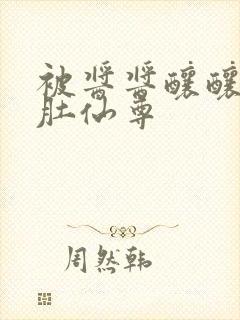 被酱酱酿酿
肚仙尊
周然韩